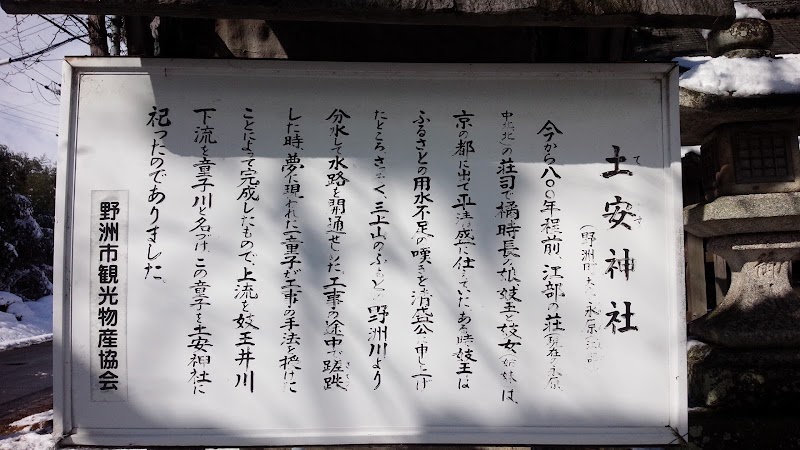 土安神社
て す
今から八〇〇年程前、江部の荘
中北)の荘司で橘時長の娘妓王と妓女(姉妹)は、
京の都に出て平清盛に仕えていた。ある時妓王は
ふるさとの用水不足の嘆きを清盛公に申し上げ
たところさ く三上山のふもと 野洲川より
分水して水路を開通せした。工事の途中で蹉跌
した時、夢に現われた童子が工事の手法を授けた
ことによって完成したもので、上流を妓王井川
下流を童子川と名づけ、この童子を土安神社に
祀ったのでありました。
野洲市観光物産協会